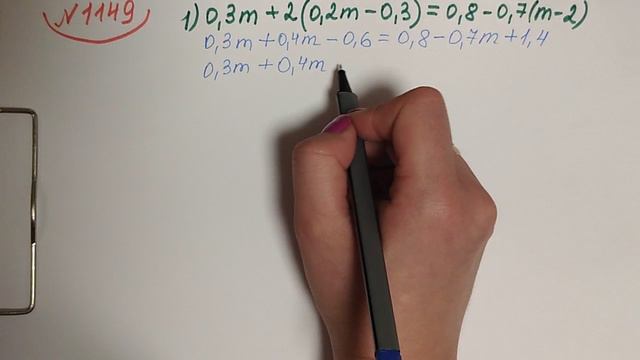 №1149
1) 0,3m + 2(0,2m - 0,3) = 0,8 - 0,7(m - 2)
0,3m + 0,4m - 0,6 = 0,8 - 0,7m + 1,4
0,3m + 0,4m